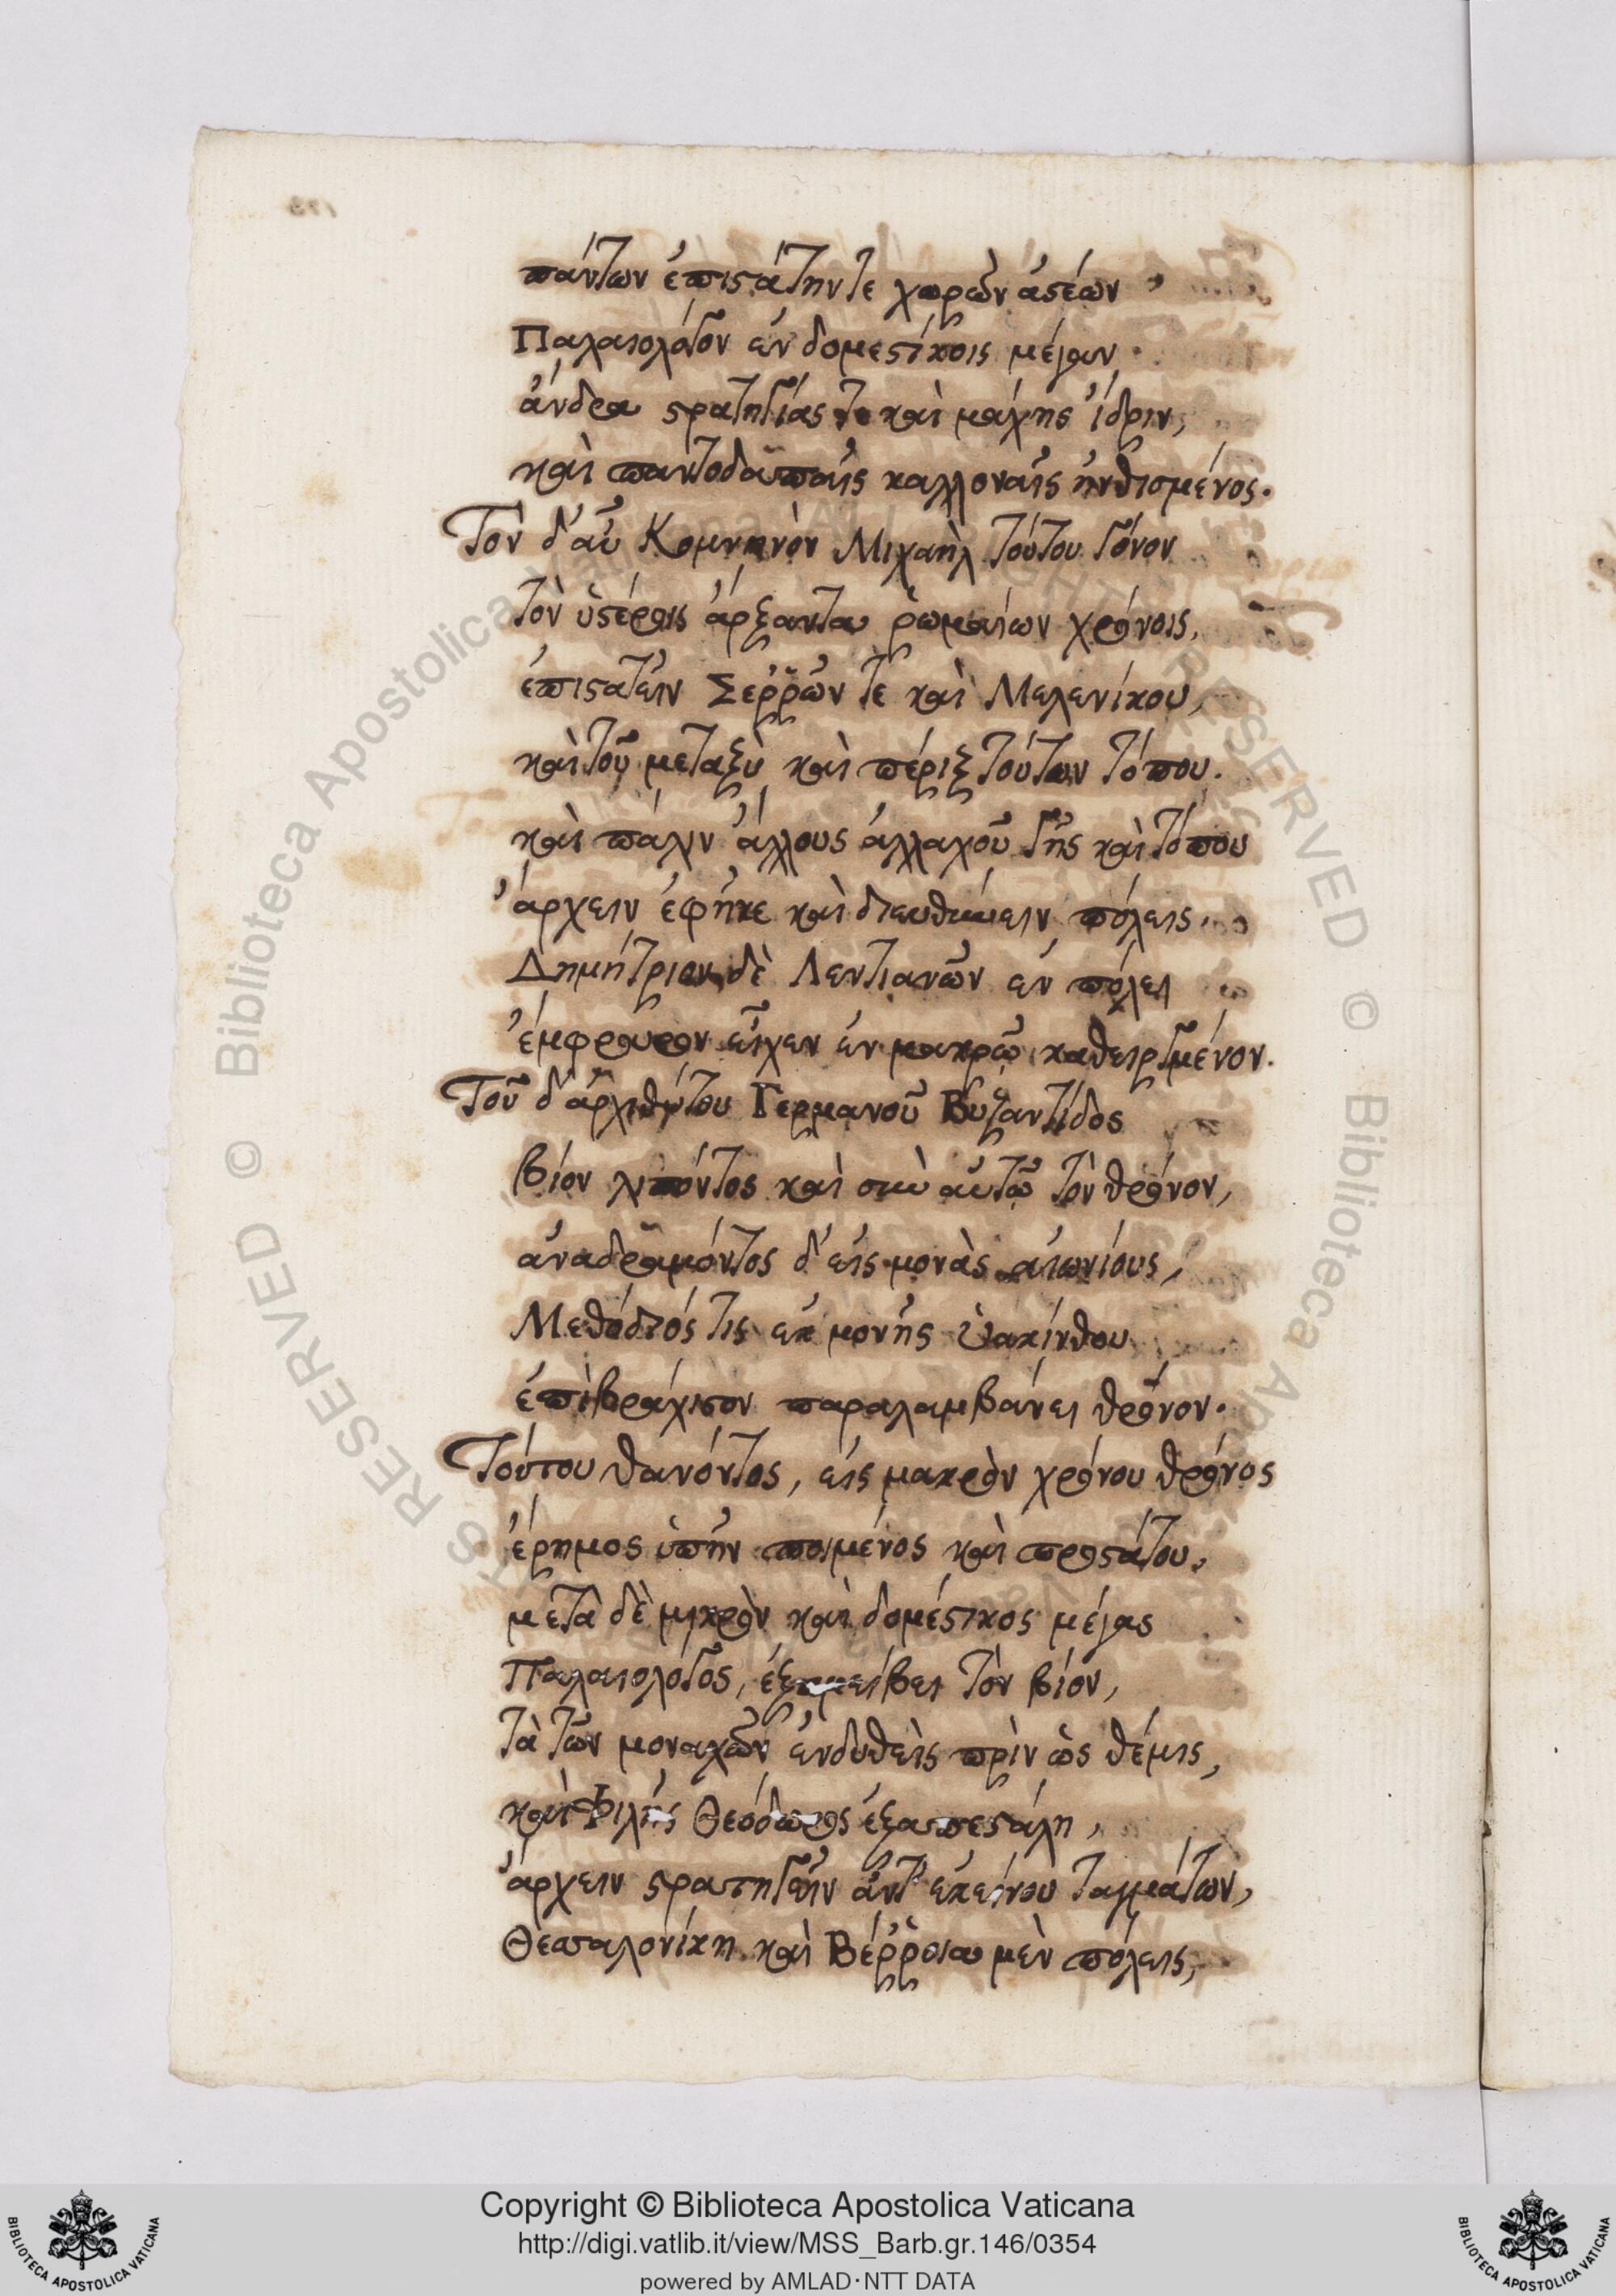 πάντων ἐπιστάτην τε χωρῶν ἀστέων,
Παλαιολόγον ἐν δομεστίκοις μέγαν.
ἄνδρα στρατηγίας τε καὶ μάχης ἴδριν,
καὶ παντοδαπαῖς καλλοναῖς ἠνθισμένος.
Τὸν δ' αὖ Κομνηνὸν Μιχαὴλ τούτου γόνον
τὸν ὑστέροις ἄρξαντα ῥωμαίων χρόνοις,
ἐπιστατεῖν Σεῤῥῶν τε καὶ Μελενίκου,
καὶ τοῦ μεταξὺ καὶ πέριξ τούτων τόπου.
καὶ πάλιν ἄλλους ἀλλαχοῦ γῆς καὶ τόπου
ἄρχειν ἐφῆκε καὶ διευθύνειν πόλεις.
Δημήτριον δὲ Λεντιανῶν ἐν πόλει
ἔμφρουρον εἶχεν ἐν μακρῷ καθειργμένον.
Τοῦ δ' ἀρχιθύτου Γερμανοῦ Βυζαντίδος
βίον λιπόντος καὶ σὺν αὐτῷ τὸν θρόνον,
ἀναδραμόντος δ' εἰς μονὰς αἰωνίους,
Μεθόδιός τις ἐκ μονῆς ὑακίνθου
ἐπὶ βράχιστον παραλαμβάνει θρόνον.
Τούτου θανόντος, εἰς μακρὸν χρόνου θρόνος
ἔρημος ὑπῆν ποιμένος καὶ προστάτου,
μετὰ δὲ μικρὸν καὶ δομέστικος μέγας
Παλαιολόγος, ἐξαμείβει τὸν βίον,
τὰ τῶν μοναχῶν ἐνδυθεὶς πρὶν ὡς θέμις,
καὶ Φιλῆς Θεόδωρος ἐξαπεστάλη,
ἄρχειν στρατηγεῖν ἀντ' ἐκείνου ταγμάτων,
Θεσσαλονίκη καὶ Βέῤῥοια μὲν πόλεις,
Copyright © Biblioteca Apostolica Vaticana
http://digi.vatlib.it/view/MSS_Barb.gr.146/0354
powered by AMLAD·NTT DATA